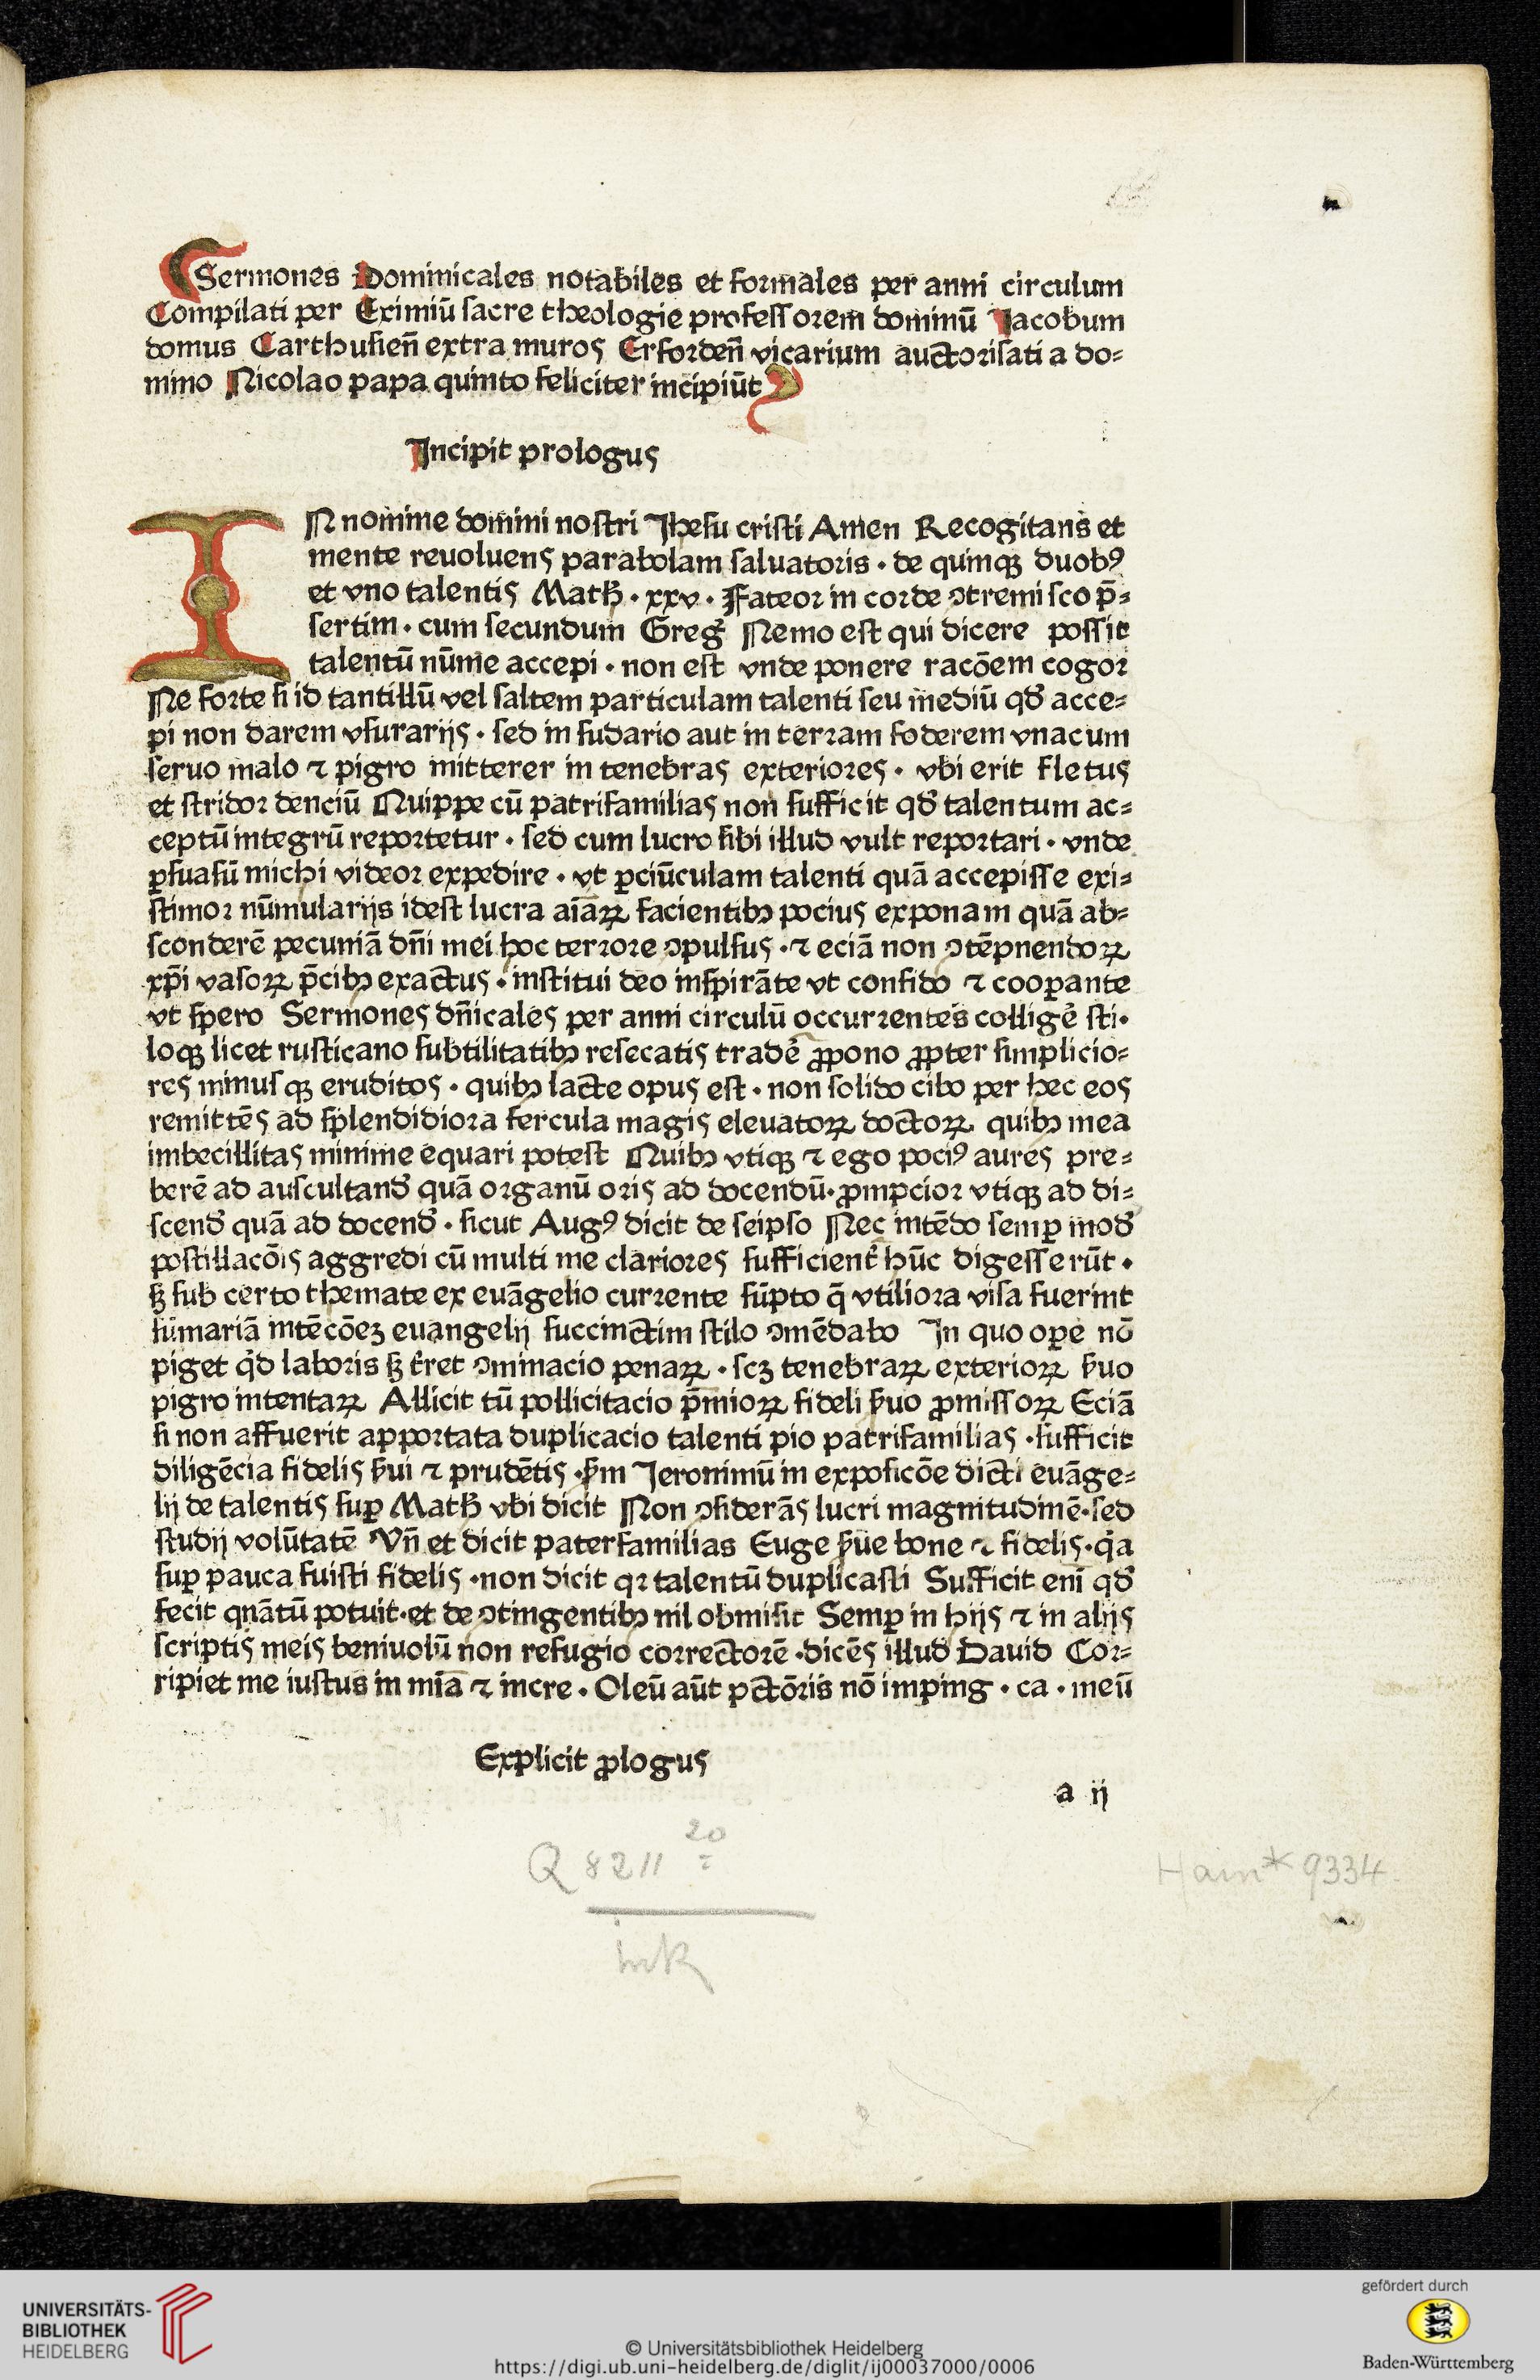 Sermones Dominicales notabiles et formales per anni circulum
Compilati per Eximiū sacre theologie professorem dominū Jacobum
domus Carthusien̄ extra muros Erforden̄ vicarium auctorisati a do=
mino Nicolao papa quinto feliciter incipiūt
Incipit prologus
IN nomine domini nostri Jhesu cristi Amen Recogitans et
mente reuoluens parabolam saluatoris · de quinqꝫ duobꝰ
et vno talentis Math̄ · xxv · Fateor in corde ꝯtremisco p̄=
sertim · cum secundum Greḡ Nemo est qui dicere possit
talentū nūme accepi · non est vnde ponere racōem cogor
Ne forte si id tantillū vel saltem particulam talenti seu mediū qd̄ acce=
pi non darem vsurarijs · sed in sudario aut in terram foderem vnacum
seruo malo ⁊ pigro mitterer in tenebras exteriores · vbi erit fletus
et stridor denciū Quippe cū patrifamilias non sufficit qd̄ talentum ac=
ceptū integrū reportetur · sed cum lucro sibi illud vult reportari · vnde
ꝑsuasū michi videor expedire · vt ꝑciūculam talenti quā accepisse exi=
stimor nūmularijs idest lucra aīaꝝ facientibꝫ pocius exponam quā ab=
sconderē pecuniā dn̄i mei hoc terrore ꝯpulsus · ⁊ eciā non ꝯtēpnendoꝝ
xp̄i vasoꝝ p̄cibꝫ exactus · institui deo inspirāte vt confido ⁊ cooꝑante
vt spero Sermones dn̄icales per anni circulū occurrentes colligē sti·
loqꝫ licet rusticano subtilitatibꝫ resecatis tradē ꝓpono ꝓpter simplicio=
res minusqꝫ eruditos · quibꝫ lacte opus est · non solido cibo per hec eos
remittēs ad splendidiora fercula magis eleuatoꝝ doctoꝝ quibꝫ mea
imbecillitas minime equari potest Quibꝫ vtiqꝫ ⁊ ego pociꝰ aures pre=
berē ad auscultand̄ quā organū oris ad docendū· ꝓmpcior vtiqꝫ ad di=
scend̄ quā ad docend̄ · sicut Augꝰ dicit de seipso Nec intēdo semꝑ mod̄
postillacōis aggredi cū multi me clariores sufficient̄ hūc digesserūt ·
sꝫ sub certo themate ex euāgelio currente sūpto q̄ vtiliora visa fuerint
sūmariā intēcōeꝫ euangelij succinctim stilo ꝯmēdabo In quo oꝑe nō
piget qͥd laboris sꝫ t̄ret ꝯminacio penaꝝ · scꝫ tenebraꝝ exterioꝝ ẜuo
pigro intentaꝝ Allicit tū pollicitacio p̄mioꝝ fideli ẜuo ꝓmissoꝝ Eciā
si non affuerit apportata duplicacio talenti pio patrifamilias · sufficit
diligēcia fidelis ẜui ⁊ prudētis · ẜm Jeronimū in exposicōe dicti euāge=
lij de talentis suꝑ Math̄ vbi dicit Non ꝯsiderās lucri magnitudinē· sed
studij volūtatē Vn̄ et dicit paterfamilias Euge ẜue bone ⁊ fidelis· qͣa
suꝑ pauca fuisti fidelis · non dicit qꝛ talentū duplicasti Sufficit enī qd̄
fecit qnātū potuit· et de ꝯtingentibꝫ nil obmisit Semꝑ in hijs ⁊ in alijs
scriptis meis beniuolū non refugio correctorē · dicēs illud Dauid Cor=
ripiet me iustus in mīa ⁊ incre · Oleū aūt pctōris nō imping · ca · meū
Explicit ꝓlogus
a ij
Q 8211 20
Hain* 9334
UNIVERSITÄTS-
BIBLIOTHEK
HEIDELBERG
© Universitätsbibliothek Heidelberg
https://digi.ub.uni-heidelberg.de/diglit/ij00037000/0006
gefördert durch
Baden-Württemberg